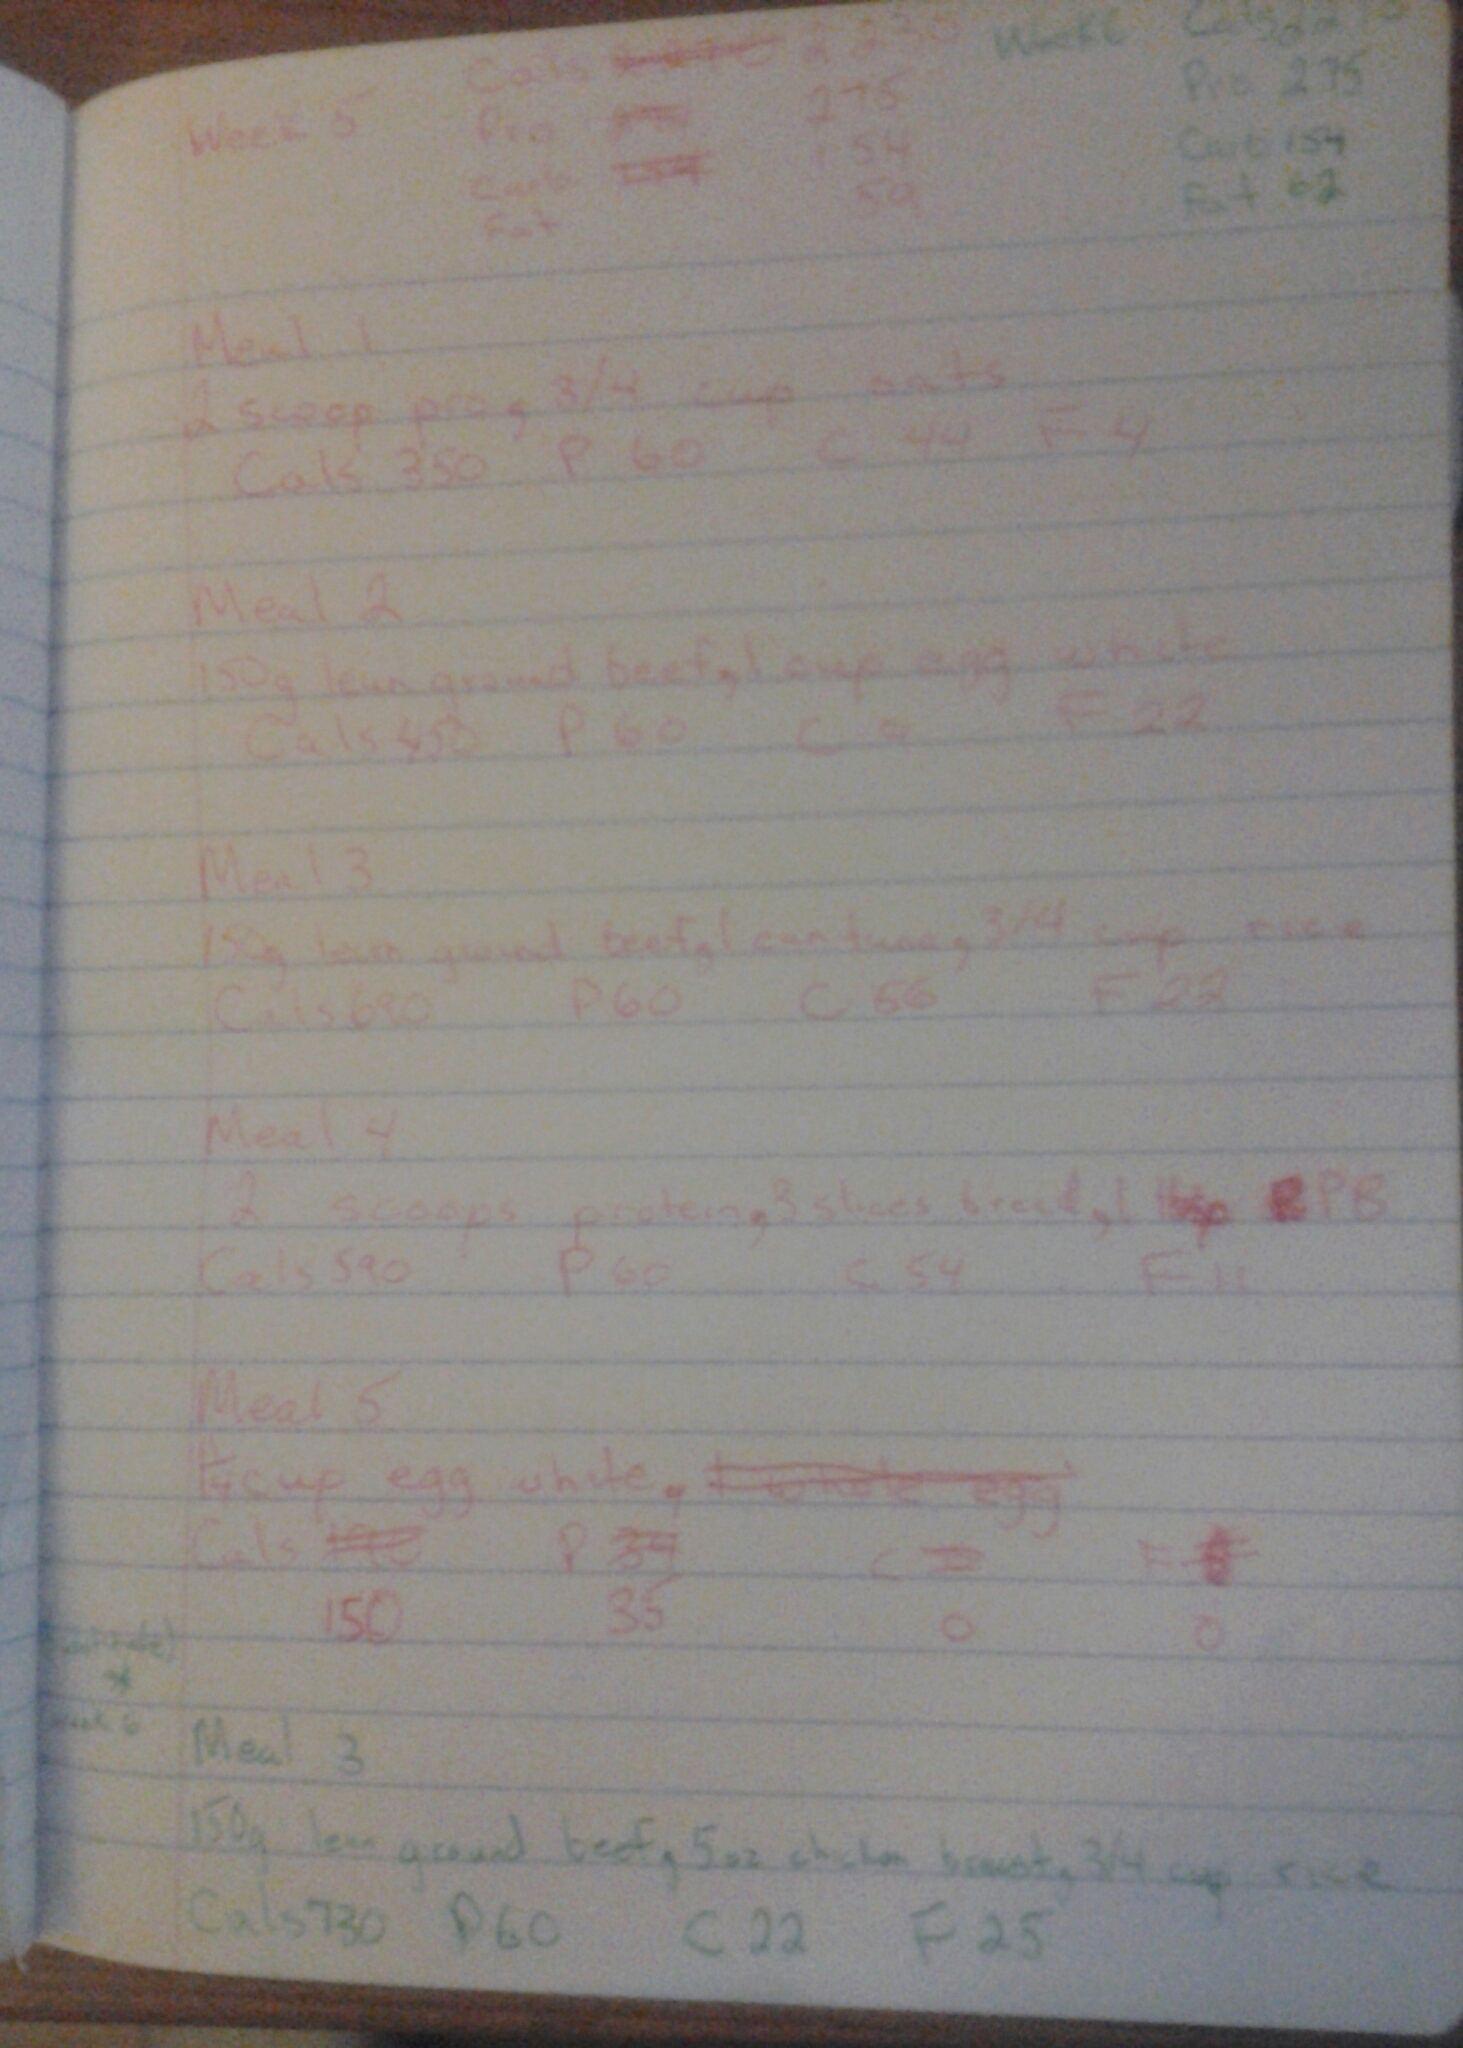 Week 5
Cals 2230
Pro 275
Carb 154
Fat 59
Week 6
Cals
Pro 275
Carb 154
Fat 62
Meal 1
2 scoop pro, 3/4 cup oats
Cals 350 P 60 C 44 F 4
Meal 2
150g lean ground beef, 1 cup egg white
Cals 450 P 60 C 0 F 22
Meal 3
150g lean ground beef, 1 can tuna, 3/4 cup rice
Cals 690 P 60 C 56 F 22
Meal 4
2 scoops protein, 3 slices bread, 1 tbsp PB
Cals 590 P 60 C 54 F 11
Meal 5
1 1/4 cup egg white, 1 whole egg
Cals P 34 C F
150 35 0 0
week 6
Meal 3
150g lean ground beef, 5oz chicken breast, 3/4 cup rice
Cals 730 P 60 C 22 F 25